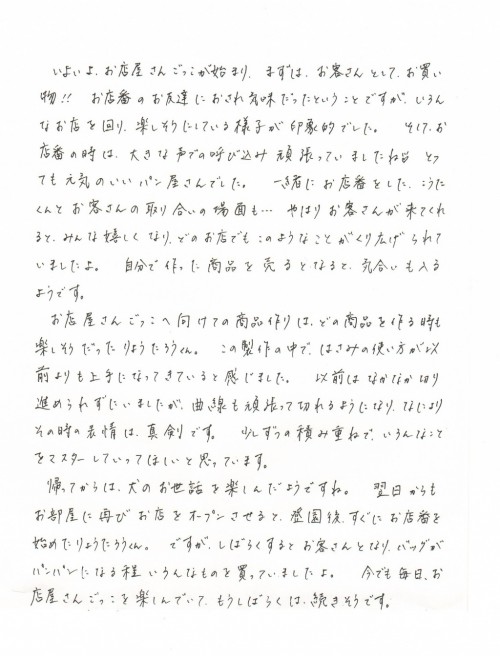 いよいよ、お店屋さんごっこが始まり、まずは、お客さんとして、お買い
物!! お店番のお友達におされ気味だったということですが、いろん
なお店を回り、楽しそうにしている様子が印象的でした。 そして、お
店番の時は、大きな声での呼び込み頑張っていましたね とっ
ても元気のいいパン屋さんでした。 一緒にお店番をした、こうた
くんとお客さんの取り合いの場面も… やはりお客さんが来てくれ
ると、みんな嬉しくなり、どのお店でもこのようなことがくり広げられて
いましたよ。 自分で作った商品を売るとなると、気合いも入る
ようです。
お店屋さんごっこへ向けての商品作りは、どの商品を作る時も
楽しそうだったりょうたろうくん。 この製作の中で、はさみの使い方が以
前よりも上手になってきていると感じました。 以前はなかなか切り
進められずにいましたが、曲線も頑張って切れるようになり、なにより
その時の表情は、真剣です。 少しずつの積み重ねで、いろんなこと
をマスターしていってほしいと思っています。
帰ってからは、犬のお世話を楽しんだようですね。 翌日からも
お部屋に再びお店をオープンさせると、登園後、すぐにお店番を
始めたりょうたろうくん。 ですが、しばらくするとお客さんとなり、バッグが
パンパンになる程いろんなものを買っていましたよ。 今でも毎日、お
店屋さんごっこを楽しんでいて、もうしばらくは、続きそうです。